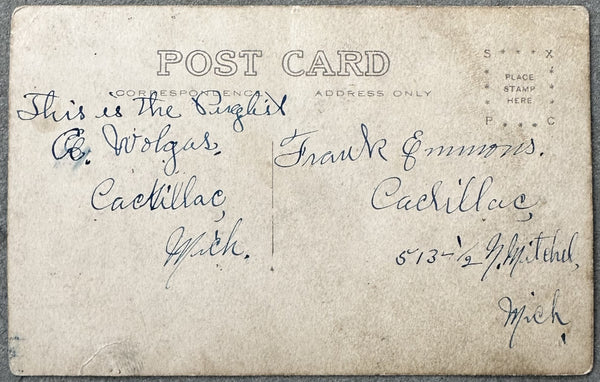 POST CARD
CORRESPONDENCE
ADDRESS ONLY
S X
PLACE
STAMP
HERE
P C
This is the Puglist
A. Wolgas.
Cadillac,
Mich.
Frank Emmons.
Cadillac,
513-1/2 N. Mitchel,
Mich.